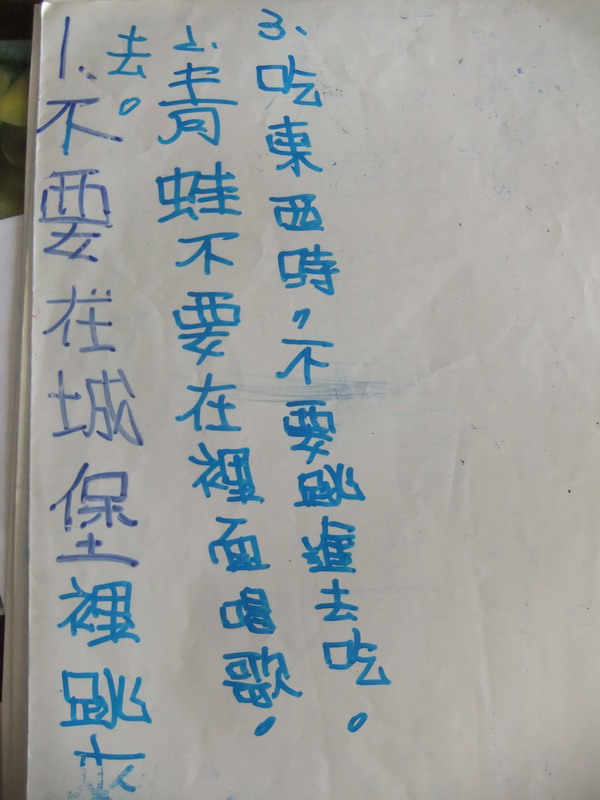 1、不要在城堡裡跳
去。
2、青蛙不要在裡面唱歌。
3、吃東西時，不要跳進去吃。